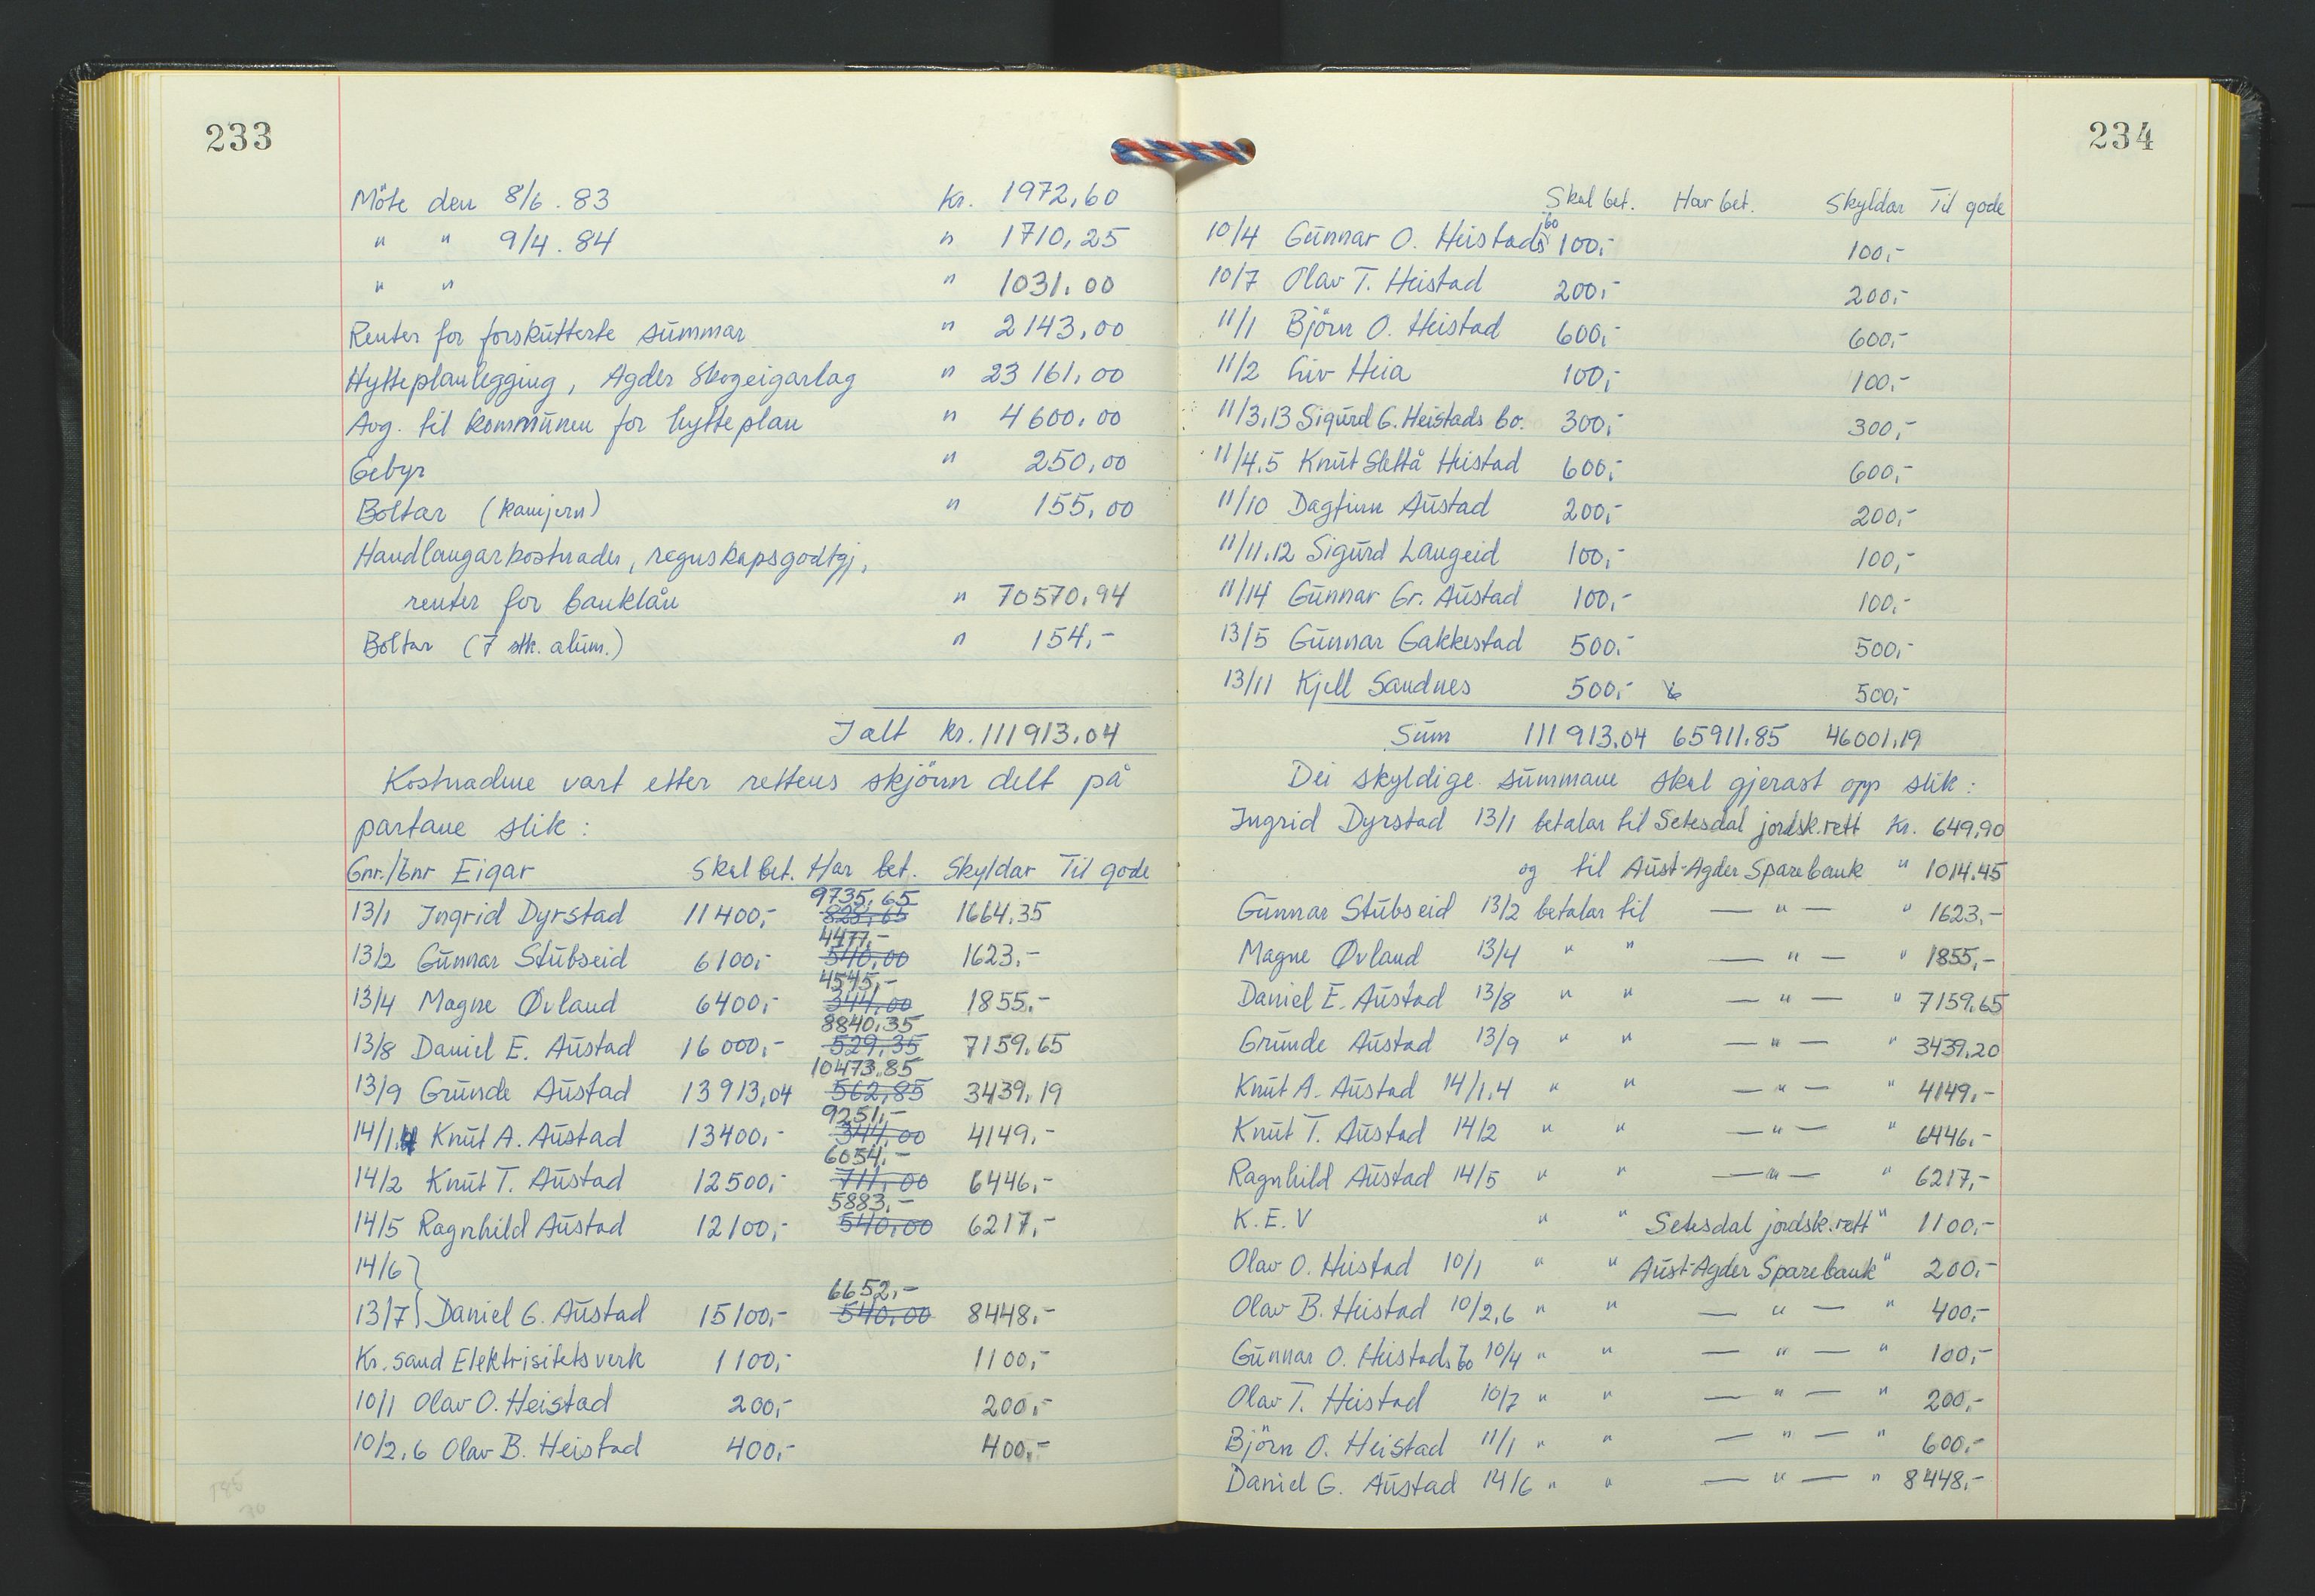 233
Möte den 8/6. 83 Kr. 1972,60
" " 9/4. 84 " 1710,25
" " " 1031,00
Renter for forskutterte summar " 2143,00
Hytteplanlegging, Agder Skogeigarlag " 23 161,00
Avg. til kommunen for hytteplan " 4600,00
Gebyr " 250,00
Boltar (kamjern) " 155,00
Handlangarkostnader, regnskapsgodtgj,
renter for banklån " 70570,94
Boltar (7 stk. alum.) " 154,-
I alt kr. 111913,04
Kostnadene vart etter rettens skjönn delt på
partane slik:
Gnr./bnr Eigar Skal bet. Har bet. Skyldar Til gode
13/1 Ingrid Dyrstad 11400,- 9735,65 828,65 1664,35
13/2 Gunnar Stubseid 6100,- 4477,- 540,00 1623,-
13/4 Magne Øvland 6400,- 4545,- 344,00 1855,-
13/8 Daniel E. Austad 16000,- 8840,35 529,35 7159,65
13/9 Grunde Austad 13913,04 10473,85 562,85 3439,19
14/1,4 Knut A. Austad 13400,- 9251,- 344,00 4149,-
14/2 Knut T. Austad 12500,- 6054,- 711,00 6446,-
14/5 Ragnhild Austad 12100,- 5883,- 540,00 6217,-
14/6}
13/7} Daniel G. Austad 15100,- 6652,- 540,00 8448,-
Kr.sand Elektrisitetsverk 1100,- 1100,-
10/1 Olav O. Heistad 200,- 200,-
10/2,6 Olav B. Heistad 400,- 400,-
185
70
234
Skal bet. Har bet. Skyldar Til gode
10/4 Gunnar O. Heistads bo 100,- 100,-
10/7 Olav T. Heistad 200,- 200,-
11/1 Björn O. Heistad 600,- 600,-
11/2 Liv Heia 100,- 100,-
11/3,13 Sigurd G. Heistads bo. 300,- 300,-
11/4,5 Knut Slettå Heistad 600,- 600,-
11/10 Dagfinn Austad 200,- 200,-
11/11,12 Sigurd Langeid 100,- 100,-
11/14 Gunnar Gr. Austad 100,- 100,-
13/5 Gunnar Gakkestad 500,- 500,-
13/11 Kjell Sandnes 500,- 500,-
Sum 111913,04 65911,85 46001,19
Dei skyldige summane skal gjerast opp slik:
Ingrid Dyrstad 13/1 betalar til Setesdal jordsk.rett Kr. 649,90
og til Aust-Agder Sparebank " 1014,45
Gunnar Stubseid 13/2 betalar til — " — " 1623,-
Magne Øvland 13/4 " " — " — " 1855,-
Daniel E. Austad 13/8 " " — " — " 7159,65
Grunde Austad 13/9 " " — " — " 3439,20
Knut A. Austad 14/1,4 " " — " — " 4149,-
Knut T. Austad 14/2 " " — " — " 6446,-
Ragnhild Austad 14/5 " " — " — " 6217,-
K.E.V " " Setesdal jordsk.rett " 1100,-
Olav O. Heistad 10/1 " " Aust-Agder Sparebank " 200,-
Olav B. Heistad 10/2,6 " " — " — " 400,-
Gunnar O. Heistads bo 10/4 " " — " — " 100,-
Olav T. Heistad 10/7 " " — " — " 200,-
Björn O. Heistad 11/1 " " — " — " 600,-
Daniel G. Austad 14/6 " " — " — " 8448,-